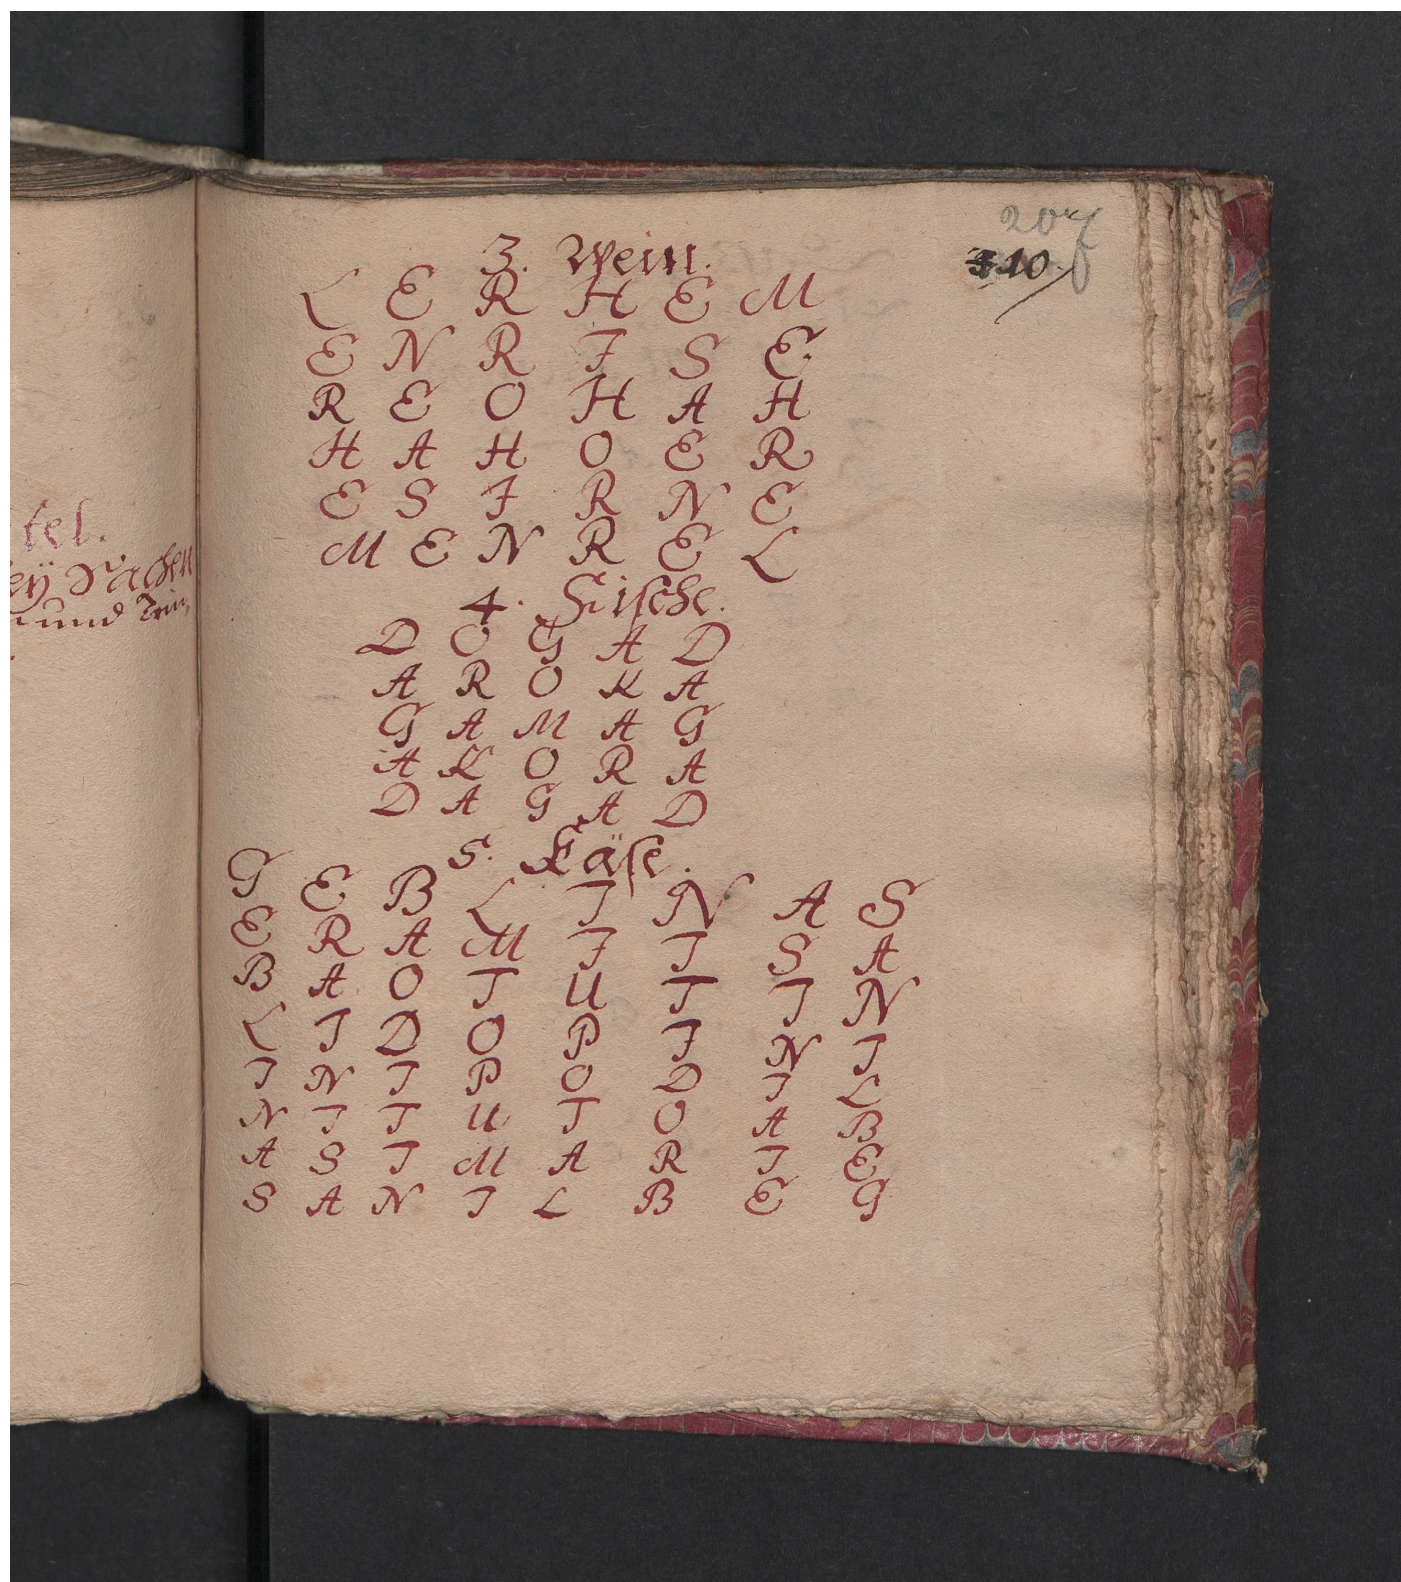 207
310.
3. Wein.
L E R H E M
E N R I S E
R E O H A H
H A H O E R
E S I R N E
M E N R E L
4. Fische.
D O G A D
A R O K A
G A M A G
A K O R A
D A G A D
5. Käse.
G E B L I N A S
E R A M I I S A
B A O T U T I N
L I D O P I N I
I N I P O D I L
N I T U T O A B
A S I M A R I E
S A N I L B E G
tel.
ey Sachen
und Trin,